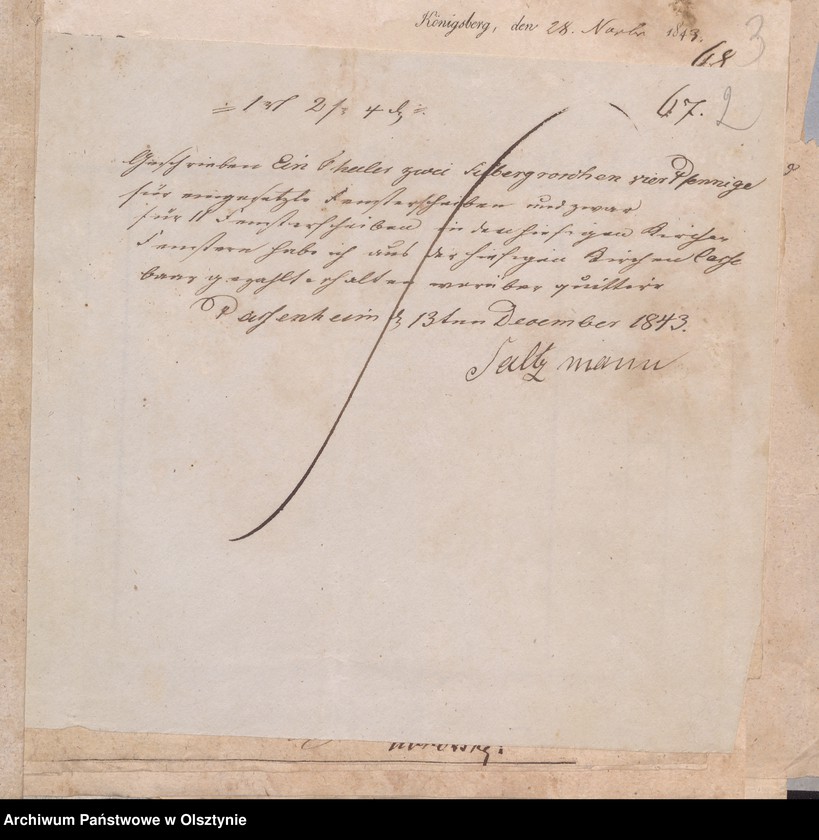 Königsberg, den 28. Novbr 1843.
3
68
67. 2
÷ 1 rtl 2 sg 4 d ÷.
Geschrieben Ein Thaler zwei Silbergroschen vier Pfennige
für eingesetzte Fensterscheiben und zwar
für 11 Fensterscheiben in den hiesigen Kirchen
Fenstern habe ich aus der hiesigen Kirchen Casse
baar gezahlt erhalten worüber quittire
Passenheim d 13ten December 1843.
Saltzmann
Archiwum Państwowe w Olsztynie